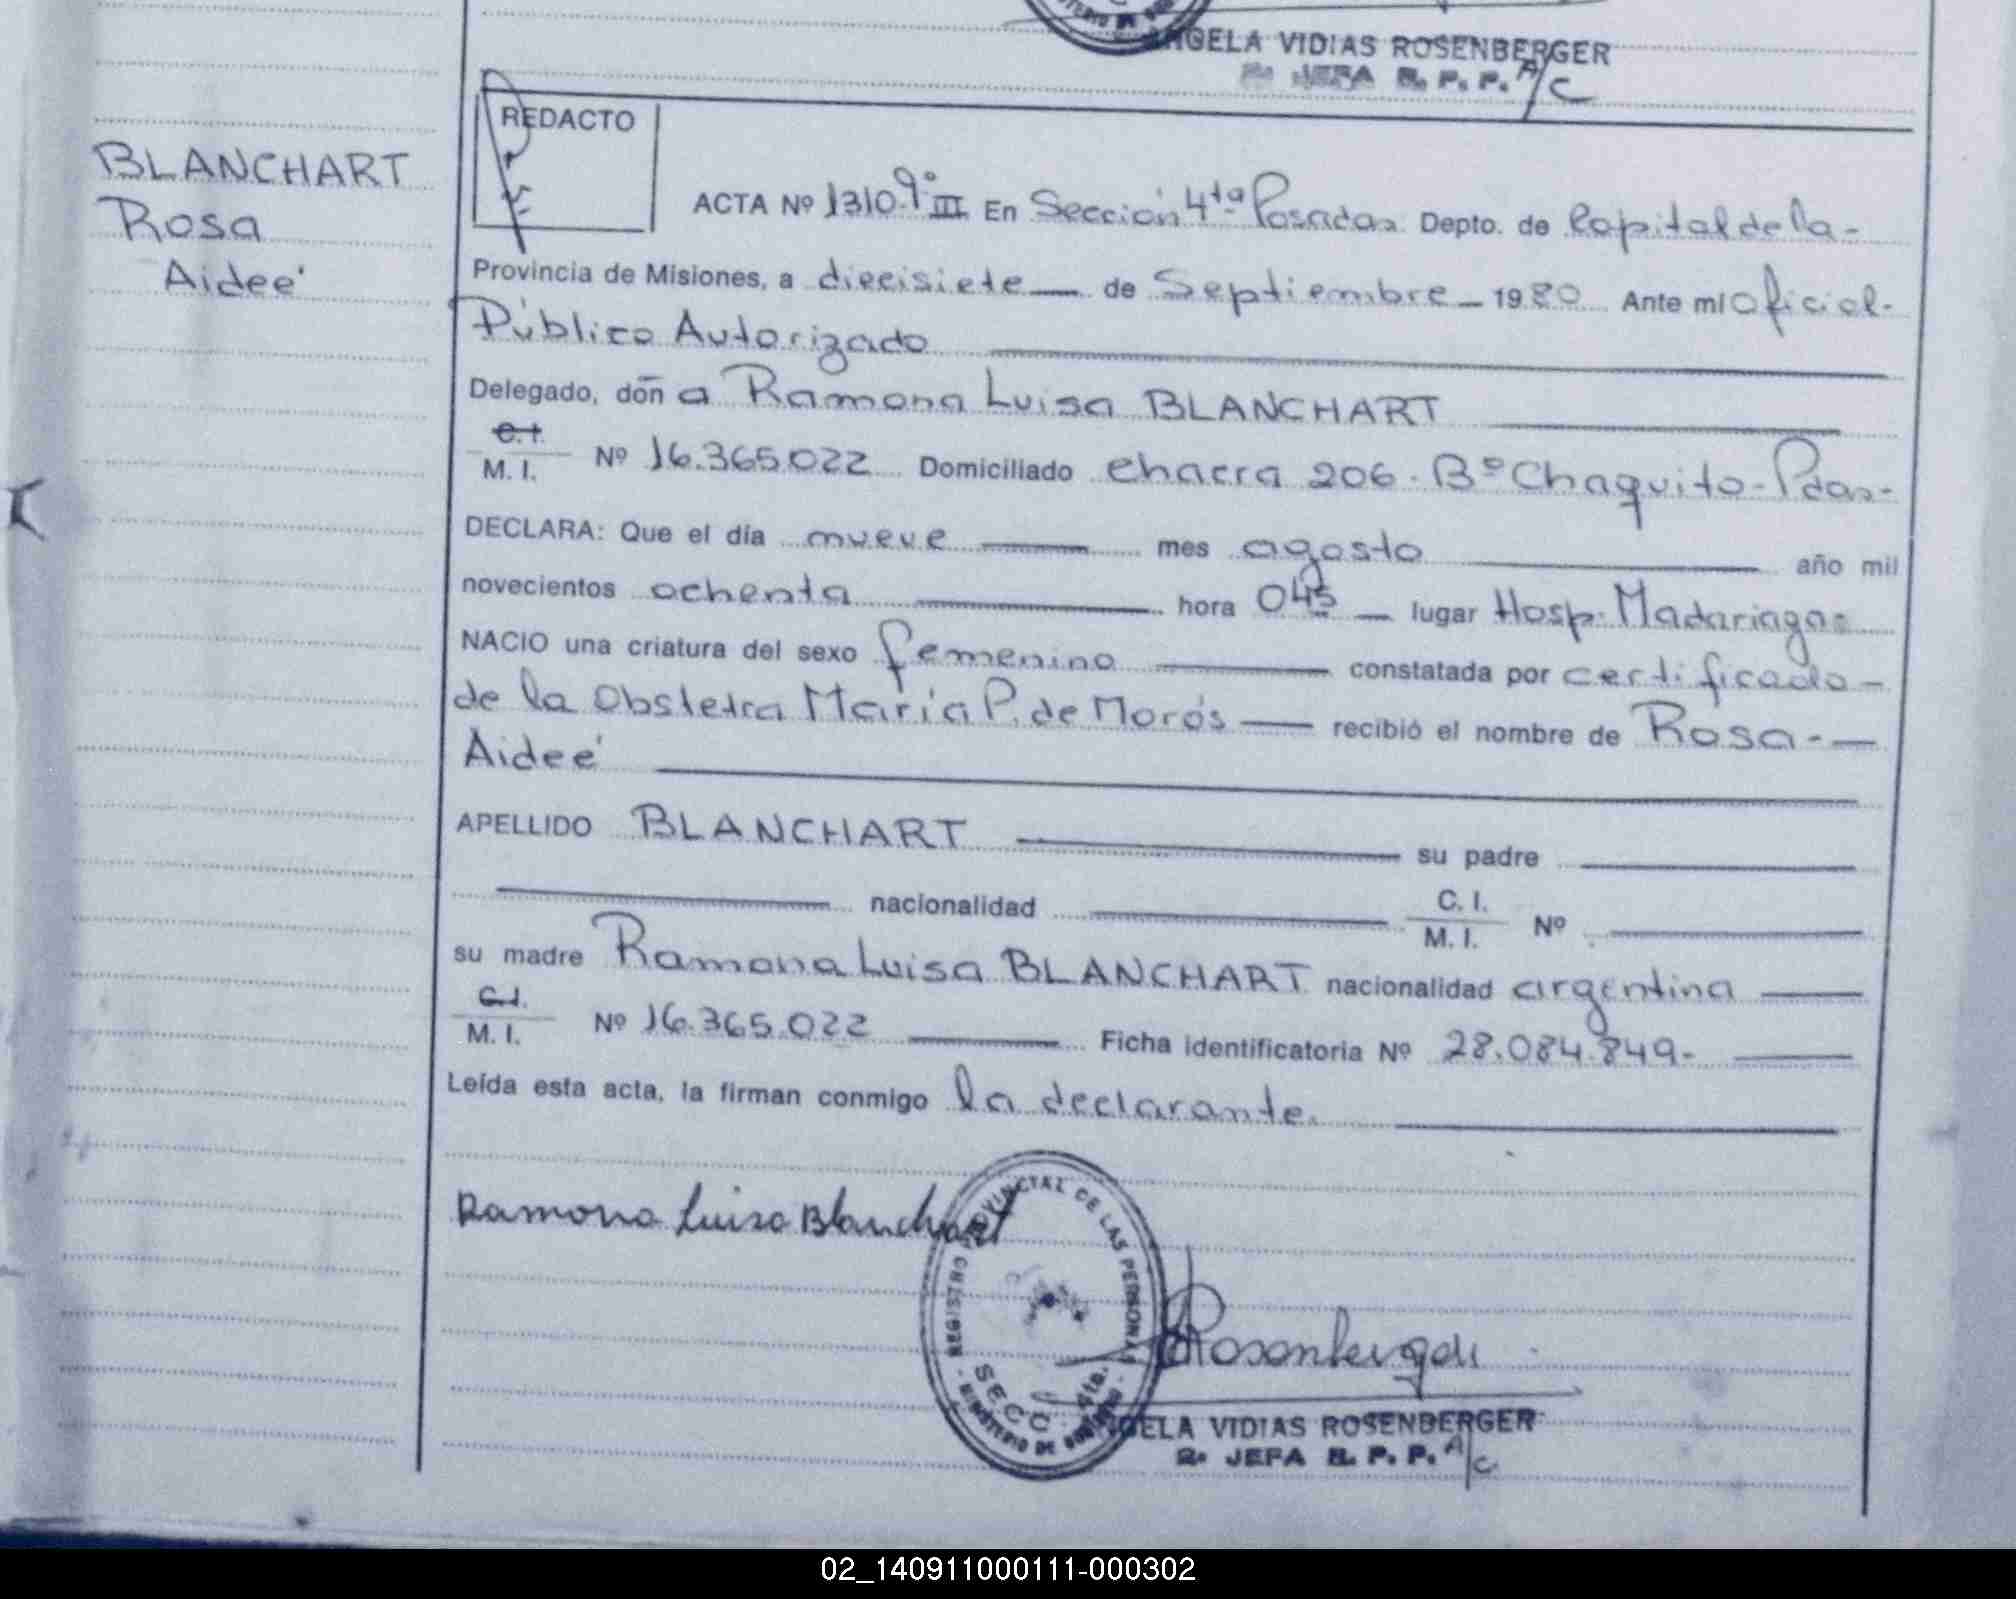 ANGELA VIDIAS ROSENBERGER
2ª JEFA R. P. P. A/C
REDACTO
BLANCHART
Rosa
Aideé
ACTA Nº 1310 Tº III En Sección 4ta Posadas Depto. de Capital de la-
Provincia de Misiones, a diecisiete — de Septiembre — 1980 Ante mi Oficial-
Público Autorizado
Delegado, doña Ramona Luisa BLANCHART
C. I.
M. I. Nº 16.365.022 Domiciliado chacra 206. Bº Chaquito-Pdas-
DECLARA: Que el día nueve — mes agosto — año mil
novecientos ochenta — hora 045 — lugar Hosp. Madariaga-
NACIO una criatura del sexo femenino — constatada por certificado-
de la Obstetra María P. de Morós — recibió el nombre de Rosa-—
Aideé
APELLIDO BLANCHART — su padre —
— nacionalidad — C. I. M. I. Nº —
su madre Ramona Luisa BLANCHART nacionalidad argentina —
C. I.
M. I. Nº 16.365.022 — Ficha identificatoria Nº 28.084.849- —
Leída esta acta, la firman conmigo la declarante.
Ramona Luisa Blanchart
REGISTRO PROVINCIAL DE LAS PERSONAS
SECC. 4ta.
MINISTERIO DE GOBIERNO
Rosenberger
ANGELA VIDIAS ROSENBERGER
2ª JEFA R. P. P. A/C
02_140911000111-000302